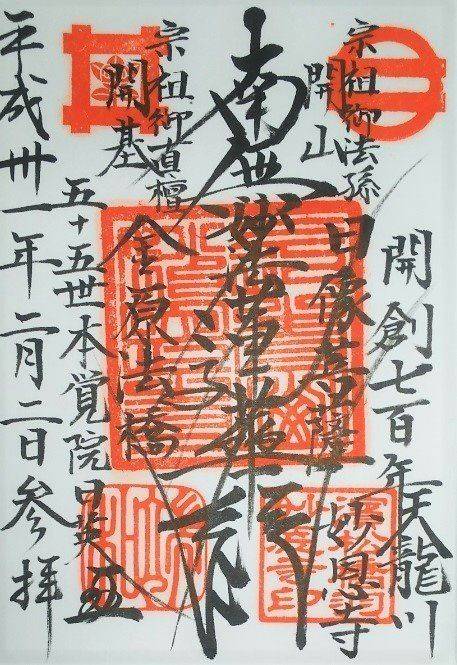 開創七百年天龍川
妙恩寺
宗祖御法孫
開山
日像菩薩
南無妙法蓮華経
宗祖御直檀
開基
金原法橋
五十五世本覚院日英
平成卅一年二月二日参拝